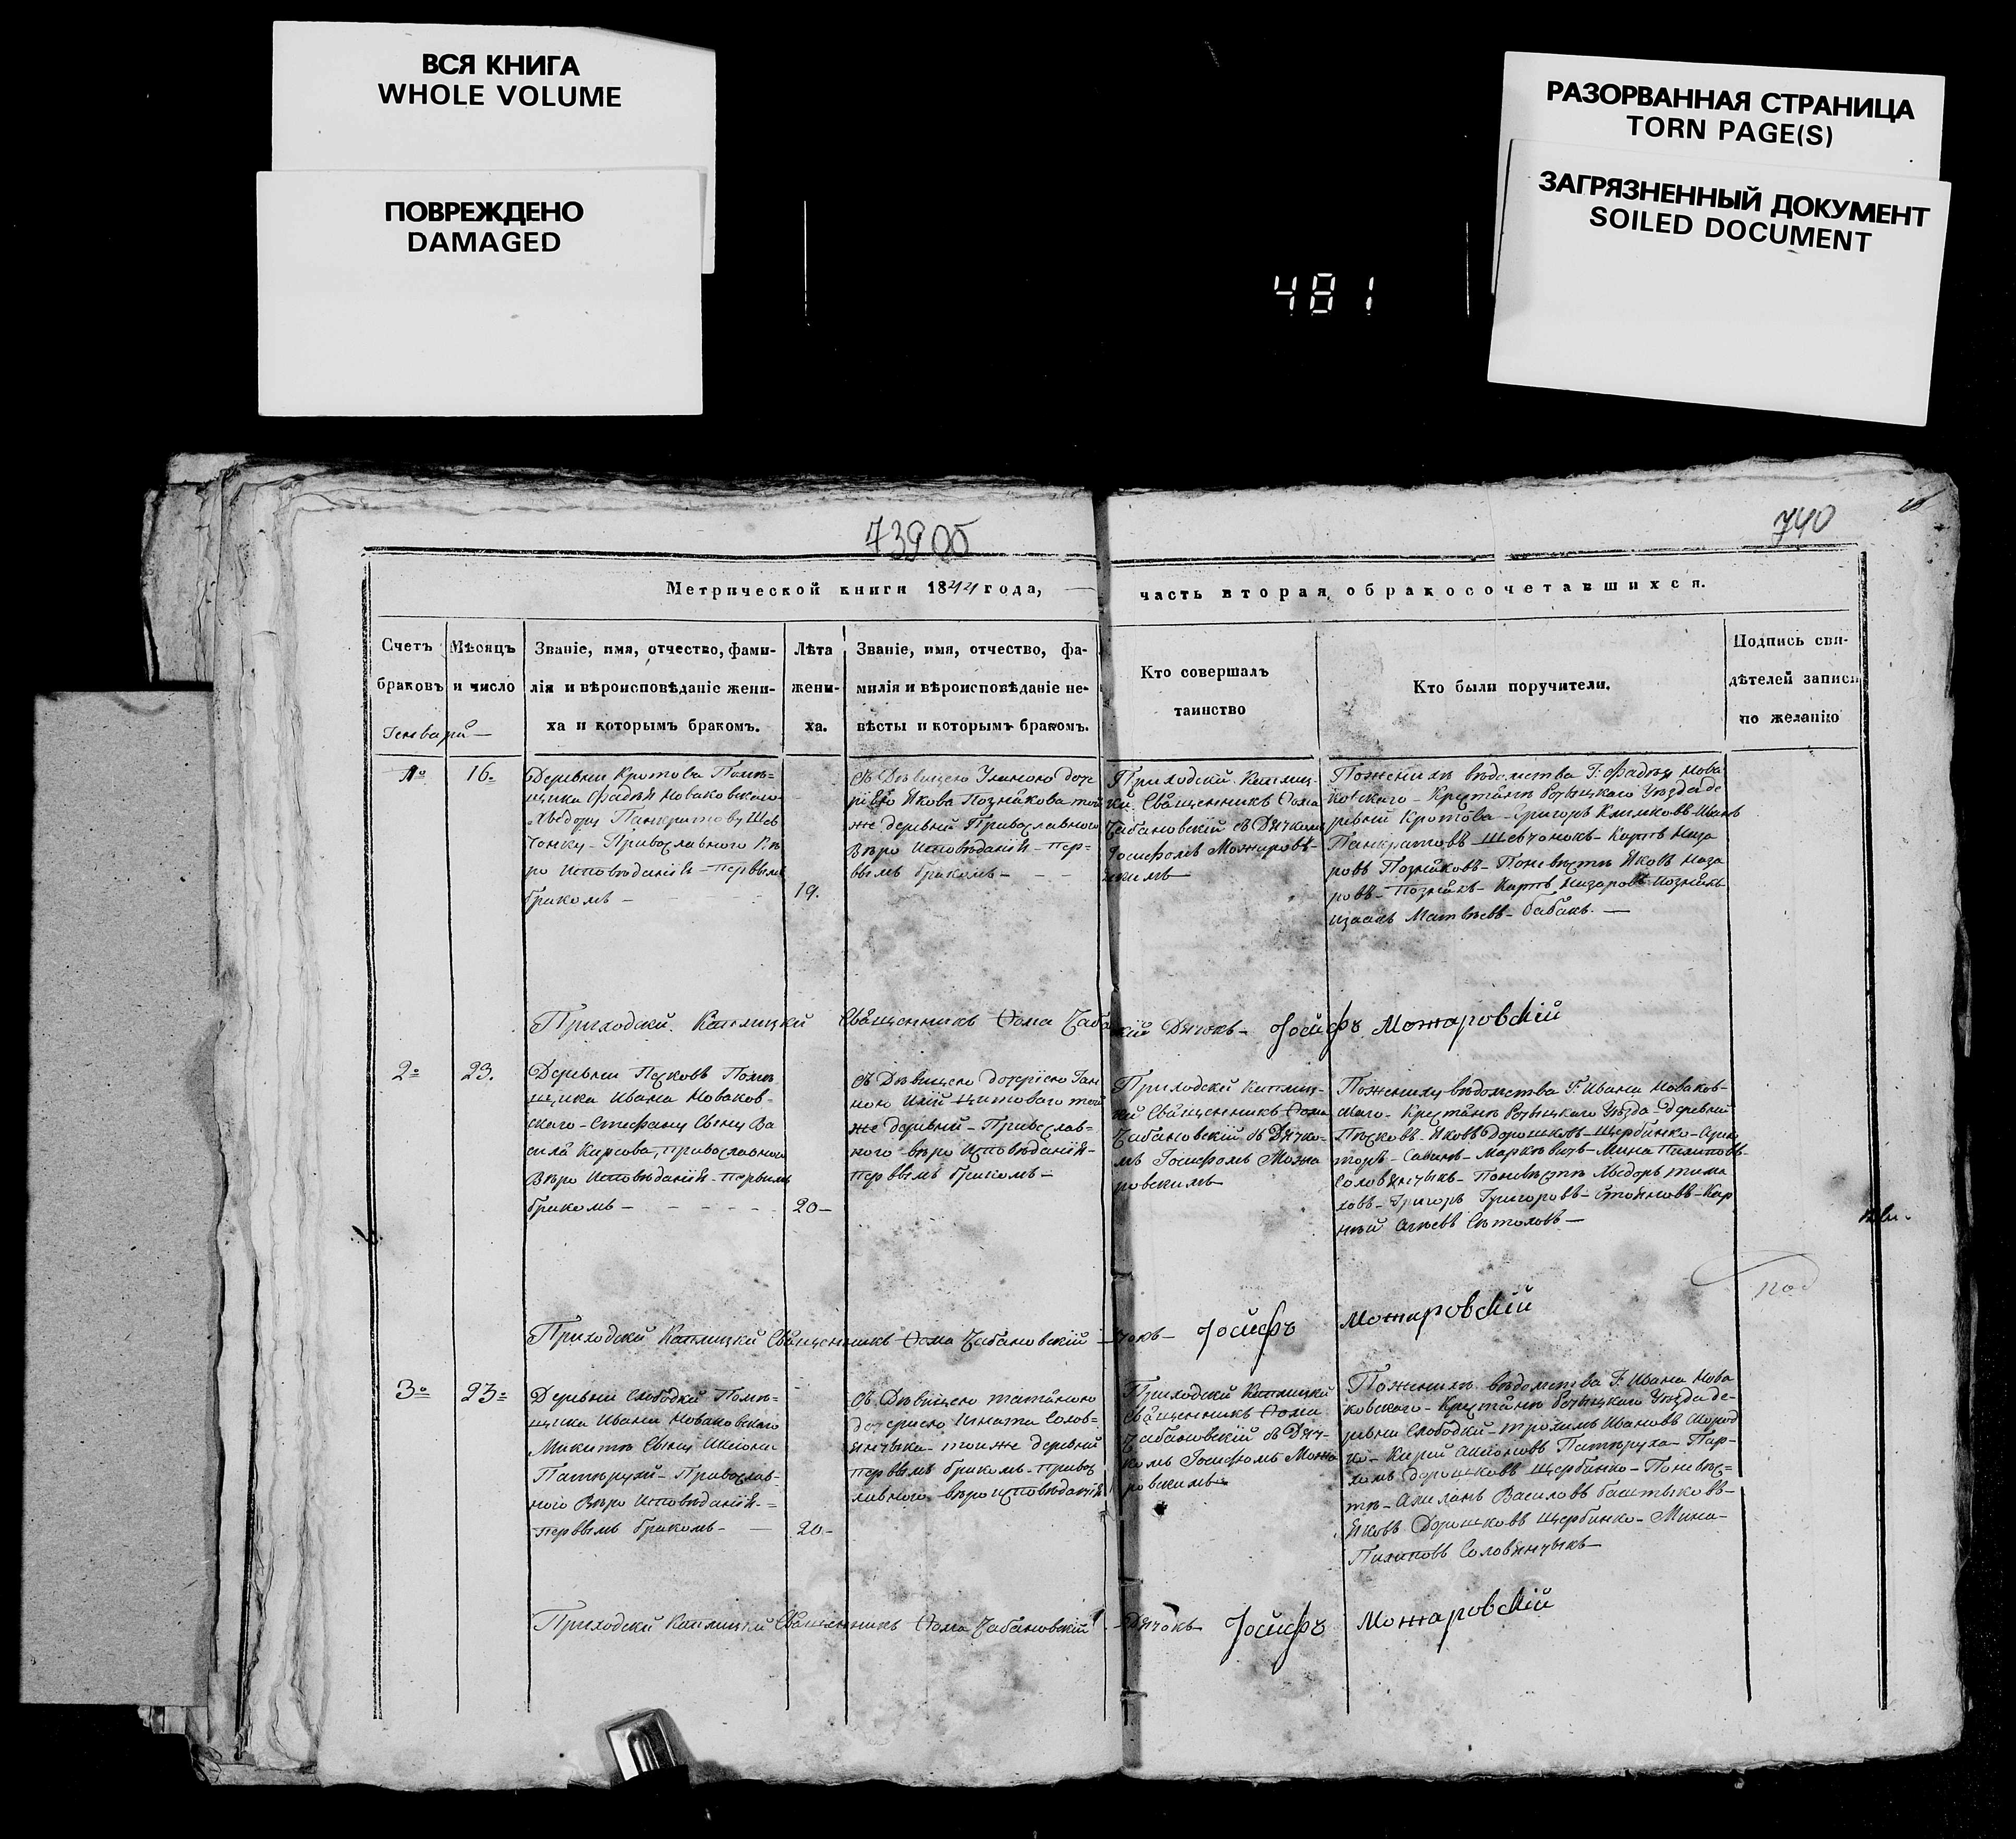 ВСЯ КНИГА
WHOLE VOLUME
ПОВРЕЖДЕНО
DAMAGED
РАЗОРВАННАЯ СТРАНИЦА
TORN PAGE(S)
ЗАГРЯЗНЕННЫЙ ДОКУМЕНТ
SOILED DOCUMENT
481
739об
740
Метрической книги 1844 года,
часть вторая, о бракосочетавшихся.
Счетъ
браковъ
Мѣсяцъ
и число
Званіе, имя, отчество, фами-
лія и вѣроисповѣданіе жени-
ха и которымъ бракомъ.
Лѣта
жени-
ха.
Званіе, имя, отчество, фа-
милія и вѣроисповѣданіе не-
вѣсты и которымъ бракомъ.
Кто совершалъ
таинство
Кто были поручители.
Подпись сви-
дѣтелей записи
по желанію
Генваря
1о
16.
Деревни Кротова Помѣ=
щика Фадѣя Новаковского
Хведору Панкратову Шев
чонку - Православного Вѣ
ро исповѣданія - первымъ
бракомъ -
19.
Съ Дѣвицею Улиною доче
рiею Якова Познякова той
же деревни Православного
Вѣро исповѣданія - пер=
вымъ бракомъ -
Приходскій Каплиц-
кій Священникъ Фома
Чабановскій съ Дячкомъ
Іосифомъ Можаровъ-
скимъ
Поженихѣ вѣдомства Г. Фадѣя Нова
ковского - Крестяне Рогѣцкого Уѣзда де
ревни Кротова - Григоръ Климковъ Иванъ
Панкратовъ Шевчонокъ - Карпъ Наза
ровъ Позняковъ - Поневѣстѣ Яковъ Наза
ровъ - Познякъ - Карпъ Назаровъ Познякъ
Изаакъ Матвѣевъ - бабакъ. -
Приходскій Каплицкій Священникъ Фома
Дячокъ - Іосифъ Можаровскій
2о
23.
Деревни Песковъ Помѣ
щика Ивана Новаков-
ского - Стефану Сыну Ва
силя Кирсова, православного
Вѣро исповѣданія - первымъ
бракомъ -
20-
Съ Дѣвицею дочерiею Ган
ною
же деревни - Православ=
ного вѣро исповѣданія -
первымъ бракомъ -
Приходскій Каплиц-
кій Священникъ Фома
Чабановскій съ Дячко-
мъ Іосифомъ Можа
ровскимъ
Поженихѣ вѣдомства Г. Ивана Новаков-
ского - Крестяне Рогѣцкого Уѣзда - деревни
Песковъ - Яковъ Дорошковъ - Щербинко -
Марковичъ - Мина Пилиповъ
Соловянчыкъ - Поневѣстѣ Хведоръ
Григоръ Григоровъ - Стояновъ -
под
Приходскій Каплицкій Священникъ Фома Чабановскій
Іосифъ Можаровскій
3о
23=
Деревни Слободки Помѣ=
щика Ивана Новаковского
Микитѣ Сыну
Патѣрухи - Православ-
ного Вѣро исповѣданія =
первымъ бракомъ -
20-
Съ Дѣвицею Татяною
дочерiею Игната Солов=
янчыка - той же деревни
первымъ бракомъ - право
лавного вѣро исповѣданія
Приходскій Каплицкій
Священникъ Фома
Чабановскій съ Дяч-
комъ Іосифомъ Можа
ровскимъ
Поженихѣ вѣдомства Г. Ивана Нова
ковского - Крестяне Рогѣцкого Уѣзда де-
ревни Слободки - Трохимъ Ивановъ
Патѣруха - Пар-
хомъ Дорошковъ Щербинко - Поневѣс=
тѣ - Василовъ
Яковъ Дорошковъ Щербинко - Мина -
Пилиповъ Соловянчыкъ -
Приходскій Каплицкій Священникъ Фома Чабановскій
Дячокъ Іосифъ Можаровскій